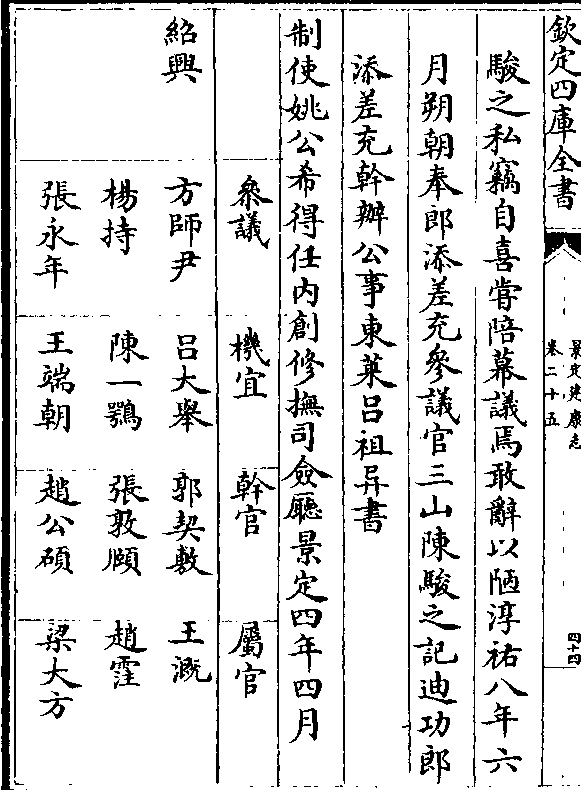 欽定四庫全書
景定建康志
卷二十五
四十四
駿之私竊自喜嘗陪幕議焉敢辭以陋淳祐八年六
月朔朝奉郎添差充參議官三山陳駿之記迪功郎
添差充幹辦公事東萊吕祖异書
制使姚公希得任内創修撫司僉廳景定四年四月
叅議 機宜 幹官 屬官
紹興
方師尹 吕大舉 郭契敷 王溉
楊持 陳一鶚 張敦頤 趙霔
張永年 王端朝 趙公碩 梁大方